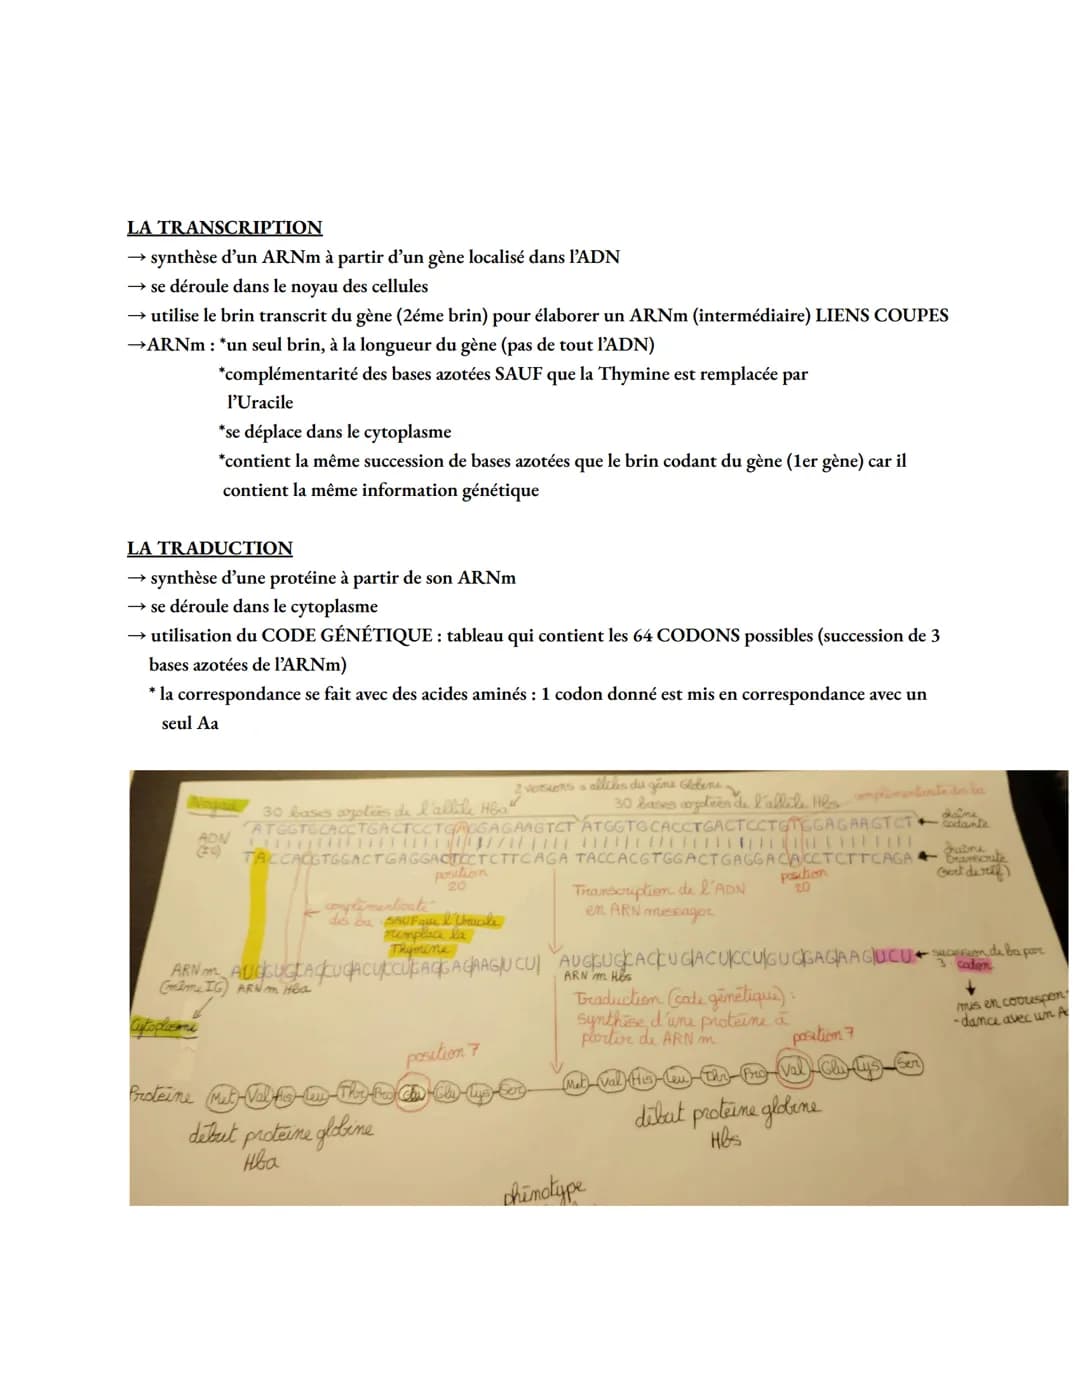 LA TRANSCRIPTION
→ synthèse d'un ARNm à partir d'un gène localisé dans l'ADN
→ se déroule dans le noyau des cellules
→ utilise le brin transcrit du gène (2éme brin) pour élaborer un ARNm (intermédiaire) LIENS COUPES
→ARNm : *un seul brin, à la longueur du gène (pas de tout l'ADN)
*complémentarité des bases azotées SAUF que la Thymine est remplacée par
l'Uracile
*se déplace dans le cytoplasme
*contient la même succession de bases azotées que le brin codant du gène (1er gène) car il
contient la même information génétique
LA TRADUCTION
→ synthèse d'une protéine à partir de son ARNm
→ se déroule dans le cytoplasme
→ utilisation du CODE GÉNÉTIQUE : tableau qui contient les 64 CODONS possibles (succession de 3
bases azotées de l'ARNm)
* la correspondance se fait avec des acides aminés : 1 codon donné est mis en correspondance avec un
seul Aa
2 versions = allèles du gène Globine
Noyau
30 bases azotées de l'allèle Hba
30 bases azotées de l'allèle Hbs
complémentarité des ba
ADN
ATGGTGCACCTGACTCCTGAGGAGAAGTCT ATGGTGCACCTGACTCCTGTGGAGAAGTCT ← chaîne codante
TACCACGTGGACTGAGGACTCCTCTTCAGA TACCACGTGGACTGAGGACACCTCTTCAGA ← chaîne transcrite
position 20
position 20
(sert de réf)
complémentarité des ba SAUF que l'Uracile remplace la Thymine
Transcription de l'ADN
en ARN messager
ARNm AUGGUGCACCUGACUCCUGAGGAGAAGUCU AUGGUGCACCUGACUCCUGUGGAGAAGUCU ← succession de ba par 3 : codon
(même IG) ARNm Hba
ARNm Hbs
mis en correspon-
-dance avec un A
Cytoplasme
Traduction (code génétique) :
synthèse d'une protéine à
partir de ARNm
position 7
position 7
Protéine Met-Val-His-Leu-Thr-Pro-Glu-Glu-Lys-Ser
Met-Val-His-Leu-Thr-Pro-Val-Glu-Lys-Ser
début protéine globine
Hba
début protéine globine
Hbs
phénotype